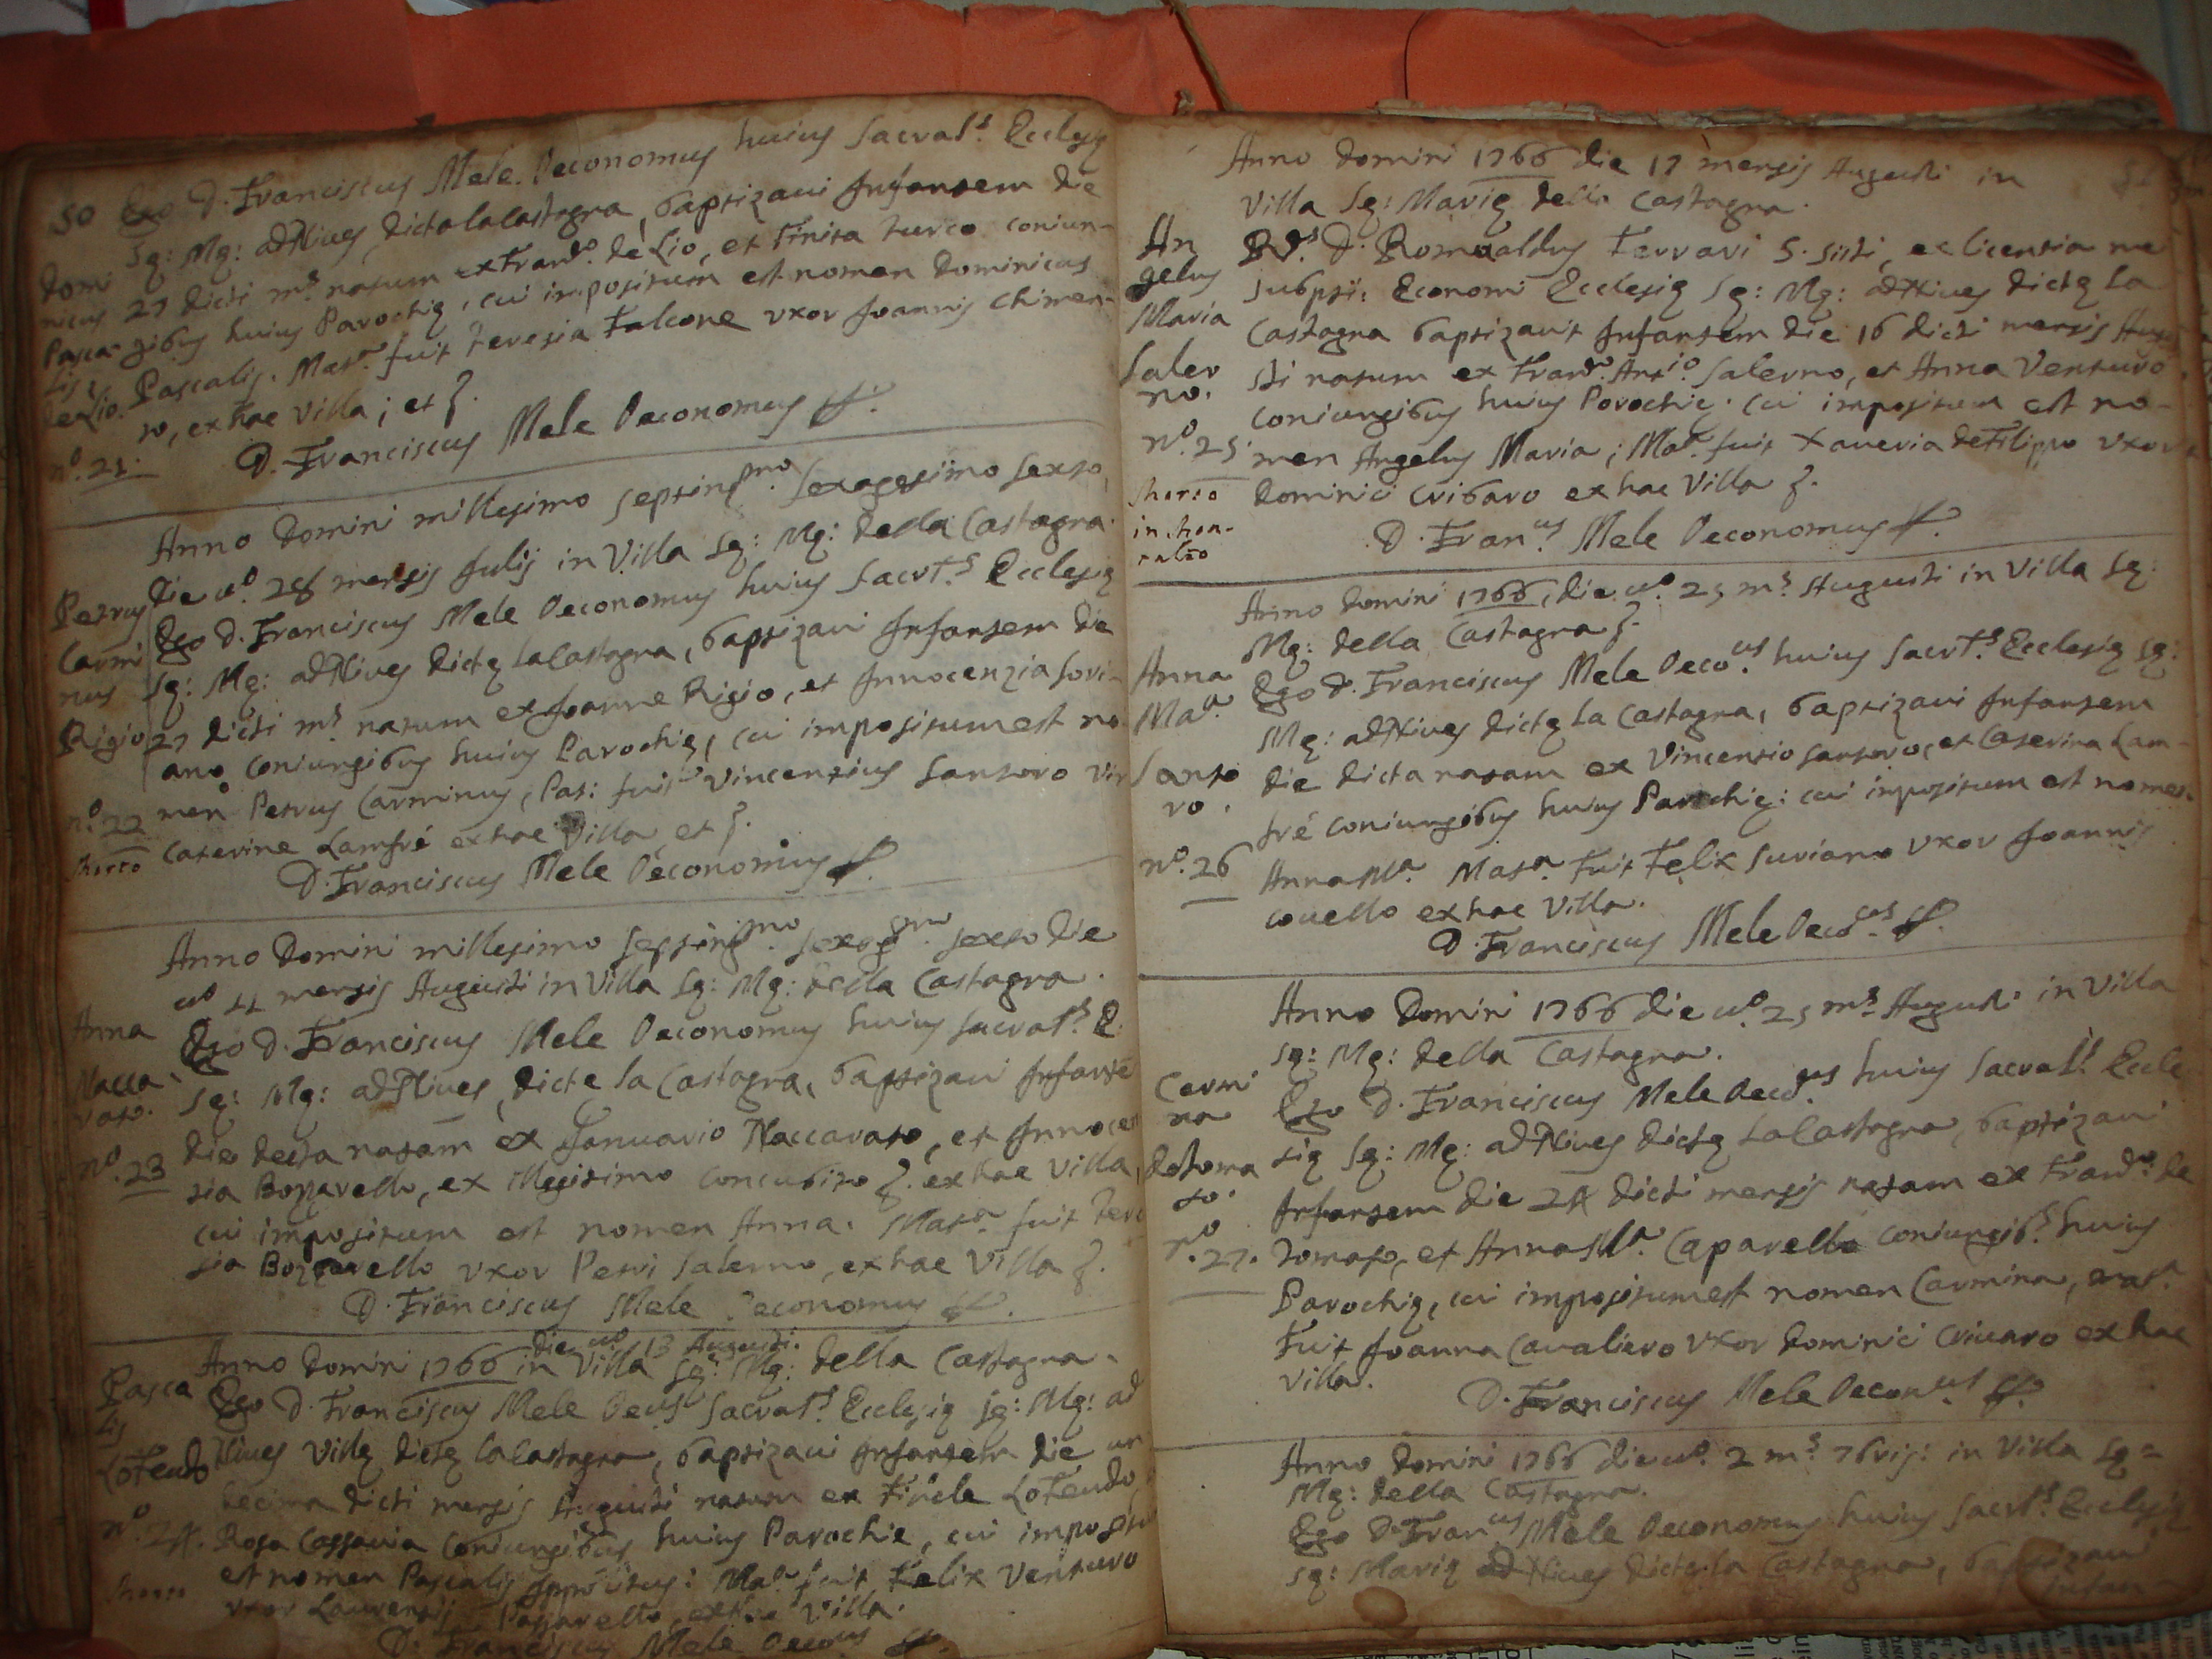 50
Ego D. Franciscus Mele Oeconomus huius Sacras.s Ecclesię
Sę: Mę: ad Nives dicta la Castagna, baptizavi Infantem die
27 dicti m.s natum ex Fran.co de Lio, et Finita Turco coniun-
gibus huius Parochię, cui impositum est nomen Dominicus
Pascalis. Mat.a fuit Teresia Falcone uxor Joannis Chimen-
to, ex hac Villa; et ʒ.
D. Franciscus Mele Oeconomus
Domi
nicus
Pasca-
lis
de Lio.
n.o 21.
Anno Domini millesimo septing.mo sexagesimo sexto,
die v.o 28 mensis Julij in Villa Sę: Mę: della Castagna.
Ego D. Franciscus Mele Oeconomus huius Sacrt.s Ecclesię
Sę: Mę: ad Nives dictę la Castagna, baptizavi Infantem die
27 dicti m.s natum ex Joanne Rigio, et Innocenzia Sovi-
ano coniungibus huius Parochię, cui impositum est no
men Petrus Carminus, Pat: fuit Vincentius Santoro vir
Caterine Lamfré ex hac Villa, et ʒ.
D. Franciscus Mele Oeconomus
Petrus
Carmi
nus
Rigio
n.o 22
Morto
Anno Domini millesimo septing.mo sexag.mo sexto die
v.o 11 mensis Augusti in Villa Sę: Mę: della Castagna.
Ego D. Franciscus Mele Oeconomus huius sacrat.s E.
Sę: Mę: ad Nives, dictę la Castagna, baptizavi Infantē
die decta natam ex Januario Naccarato, et Innocen
sia Bonavello, ex illegitimo concubito ʒ. ex hac Villa,
cui impositum est nomen Anna. Mat.a fuit Tere
sia uxor Petri Salerno, ex hac Villa ʒ.
D. Franciscus Mele Oeconomus
Anna
Nacca-
rato.
n.o 23
die v.o 13 Augusti.
Anno Domini 1766 in Villa Sę: Mę: della Castagna.
Ego D. Franciscus Mele Oec.us Sacrat.s Ecclesię Sę: Mę: ad
Nives Villę dictę la Castagna, baptizavi Infantem die un
decima dicti mensis Augusti natum ex Fidele Lo Feudo,
Rosa Cassavia Coniungibus huius Parochie, cui impositu
est nomen Pascalis Ippolitus: Ma.a fuit Felix Venturo
uxor Laurentij Passarello, ex hac Villa.
D. Franciscus Mele Oeco.us
Pasca
lis
Lo Feudo
n.o 24.
Morto
Anno Domini 1766 die 17 mensis Augusti in
Villa Sę: Marię della Castagna.
R.ds D. Romualdus Ferrari S. Sisti, ex licentia me
subpsi: Economi Ecclesię Sę: Mę: ad Nives dictę la
Castagna baptizavit Infantem die 16 dicti mensis Augu
sti natum ex Fran.co Ant.io Salerno, et Anna Venturo
coniungibus huius Parochię. cui impositum est no-
men Angelus Maria; Ma.a fuit Xaveria de Filippo uxor
Dominici Cribaro ex hac Villa ʒ.
D. Fran.us Mele Oeconomus
An
gelus
Maria
Saler
no.
n.o 25.
Morto
in Mon-
talto
Anno Domini 1766, die v.o 25 m.s Augusti in Villa Sę:
Mę: della Castagna ʒ.
Ego D. Franciscus Mele Oeco.us huius Sacrt.s Ecclesię Sę:
Mę: ad Nives dictę la Castagna, baptizavi Infantem
die dicta natam ex Vincentio Santoro, et Caterina Lam-
fré coniungibus huius Parochię: cui impositum est nomen
Anna M.a Mat.a fuit Felix Suriano uxor Joannis
Covello ex hac Villa.
D. Franciscus Mele Oeco.us
Anna
Ma.a
Santo
ro.
n.o 26
Anno Domini 1766 die v.o 25 m.s Augusti in Villa
Sę: Mę: della Castagna.
Ego D. Franciscus Mele Oeco.us huius Sacrat.s Eccle
się Sę: Mę: ad Nives dictę la Castagna, baptizavi
Infantem die 24 dicti mensis natam ex Fran.co de
Tomaso, et Anna M.a Caparello coniungib.s huius
Parochię, cui impositum est nomen Carmina, mat.a
fuit Joanna Cavaliero uxor Dominici Crivaro ex hac
Villa.
D. Franciscus Mele Oecon.us
Carmi
na
de Toma
so.
n.o 27.
Anno Domini 1766 die v.o 2 m.s 7bris: in Villa Sę:
Mę: della Castagna.
Ego D. Fran.us Mele Oeconomus huius Sacrt.s Ecclesię
Sę: Marię ad Nives dictę la Castagna, baptizavi
infan-